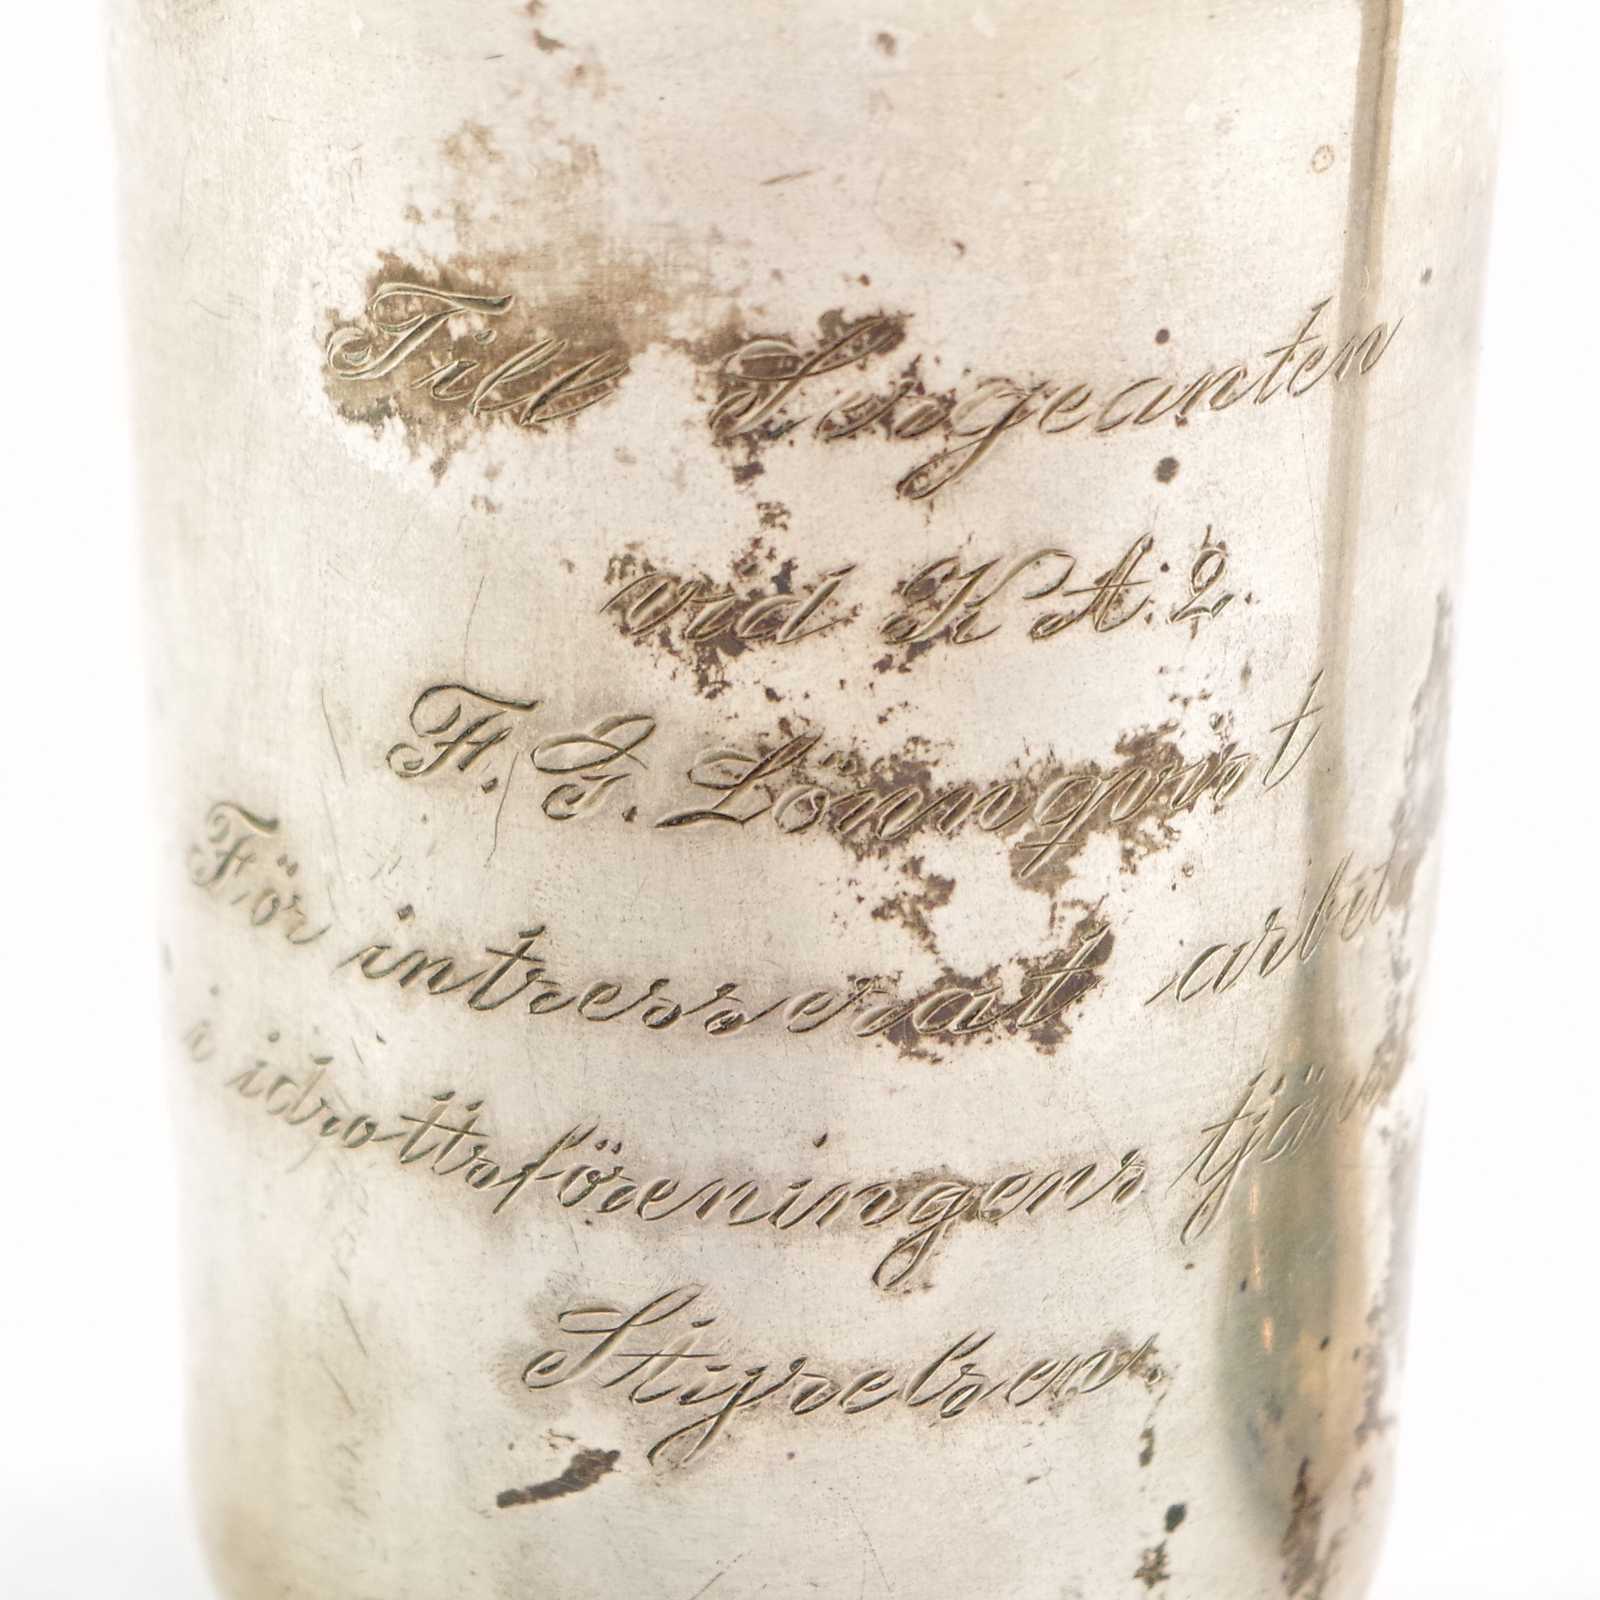 Till Sergeanten
vid K A. 2.
F. G. Lönnqvist
För intresserat arbet
i idrottsföreningens tjänst
Styrelsen.